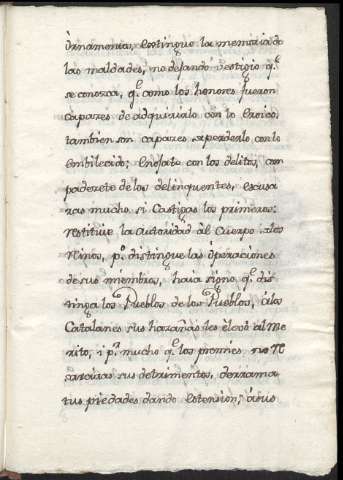 Ornamentos, Extingue la memoria de
las maldades, no dejando Vestigio q.ᵉ
se conosca, q.ᵉ como los honores fueron
capaces de adquirirlo con lo
tambien son capaces àperderlo con lo
embilecido; Enojate con los delitos, com
padezete de los delinquentes, escusa
ras mucho si Castigas los primeros:
restitúie la autoridad àl Cuerpo
Niños, p.º distingue las òperaciones
de sus miembros, haia signo q.ᵉ dis
tinga los Pueblos de los Pueblos, à los
Catalanes sus hazañas les elevò àl me
rito, i p.ʳ mucho q.ᵉ los premies no
sus detrimentos, derrama
tus piedades dando Estension; à sus